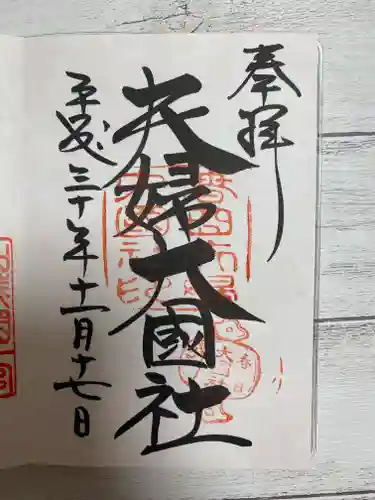 奉拝
夫婦大國社
平成三十年十一月十七日